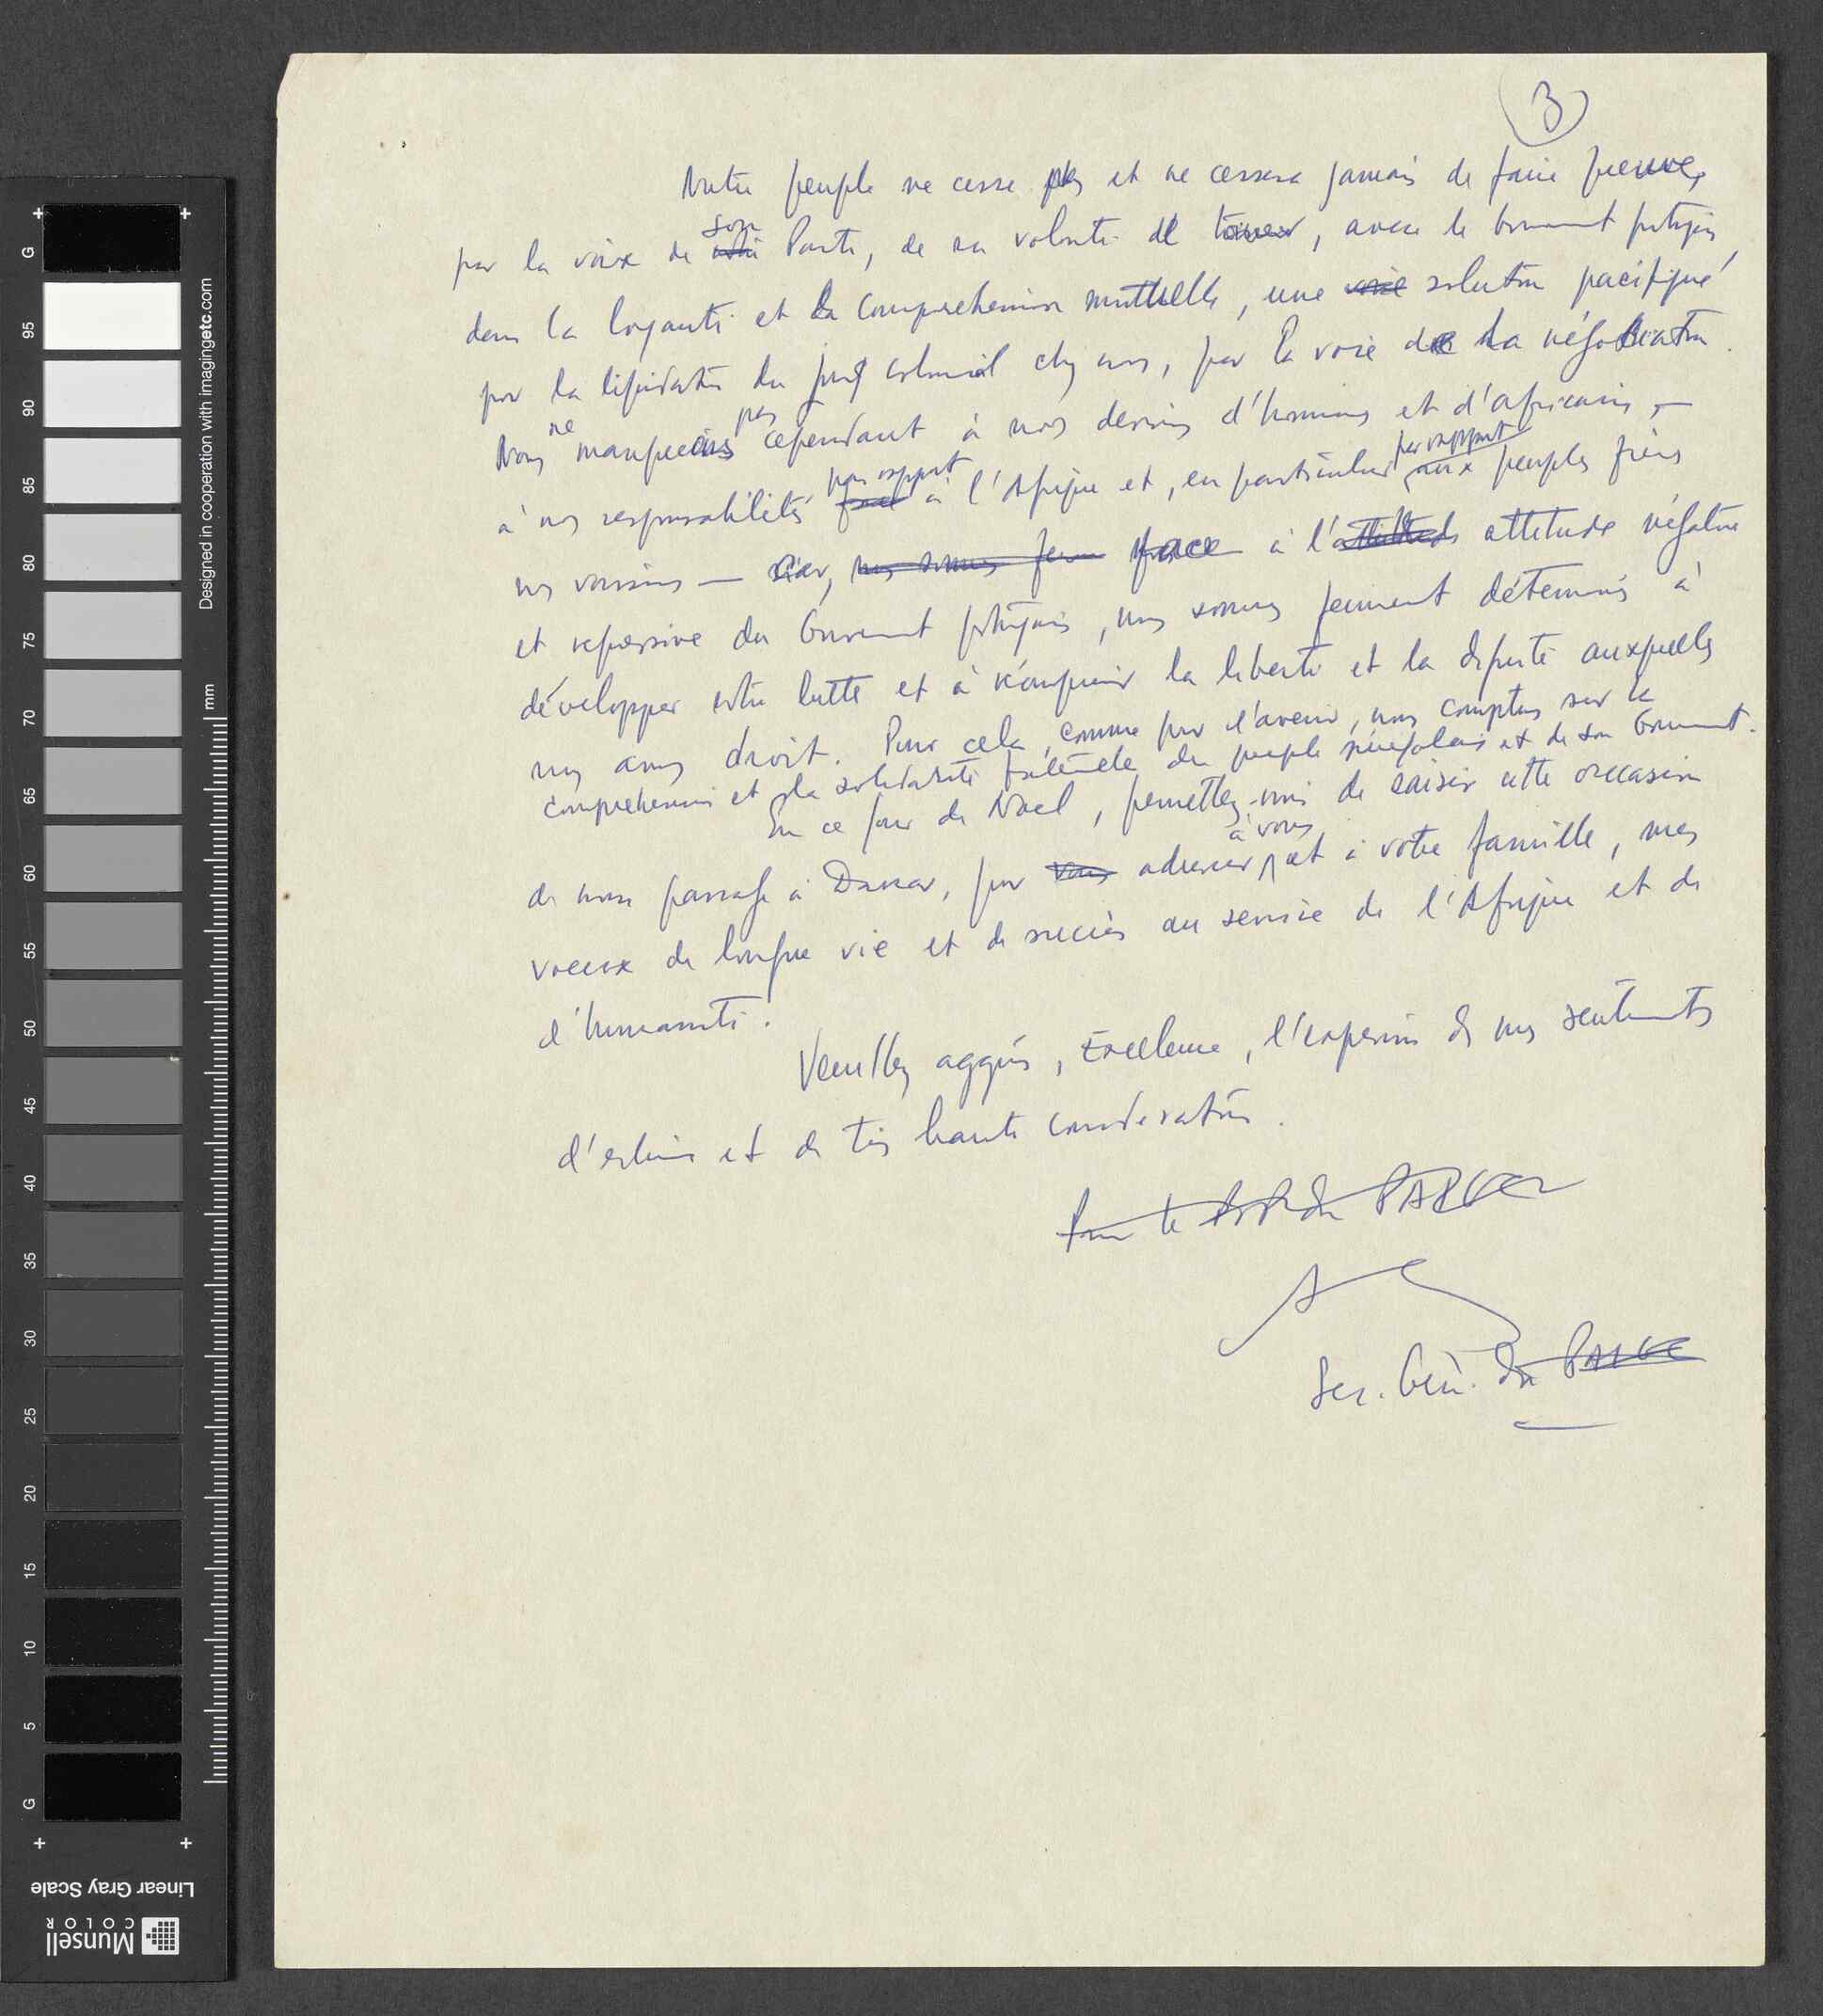 3
Notre peuple ne cesse pas et ne cessera jamais de faire preuve,
par la voix de son Parti, de sa volonté de trouver, avec le Gouvernement portugais,
dans la loyauté et la compréhension mutuelle, une voie solution pacifique
pour la liquidation du joug colonial chez nous, par la voie de la négociation.
Nous ne manquerons pas cependant à nos devoirs d'hommes et d'africains, —
à nos responsabilités face par rapport à l'Afrique et, en particulier, par rapport aux peuples frères
nos voisins — car, nous sommes ferm face à l'attitude attitude négative
et repressive du Gouvernement portugais, nous sommes fermement déterminés à
développer notre lutte et à conquérir la liberté et la dignité auxquelles
nous avons droit. Pour cela, comme pour l'avenir, nous comptons sur la
compréhension et la solidarité fraternelle du peuple sénégalais et de son Gouvernement.
En ce jour de Noel, permettez-moi de saisir cette occasion
de mon passage à Dakar, pour vous adresser, à vous et à votre famille, mes
voeux de longue vie et de succès au service de l'Afrique et de
l'humanité.
Veuillez aggréer, Excellence, l'expression de mes sentiments
d'estime et de très haute considération.
Pour le B.P. du PAIGC
Sec. Gén. du PAIGC
G
95
90
85
80
75
70
65
60
55
50
45
40
35
30
25
20
15
10
5
G
mm
Designed in cooperation with imagingetc.com
Linear Gray Scale
Munsell
COLOR